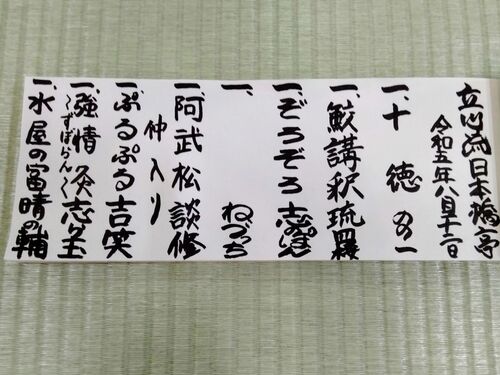 立川流日本橋亭
令和五年八月十二日
一、十徳 のの一
一、鮫講釈 琉羅
一、ぞろぞろ 志のぽん
一、 ねづっち
一、阿武松 談修
仲入り
一、ぷるぷる 吉笑
一、強情灸 志ら玉
〜ずぼらん〜
一、水屋の富 晴の輔